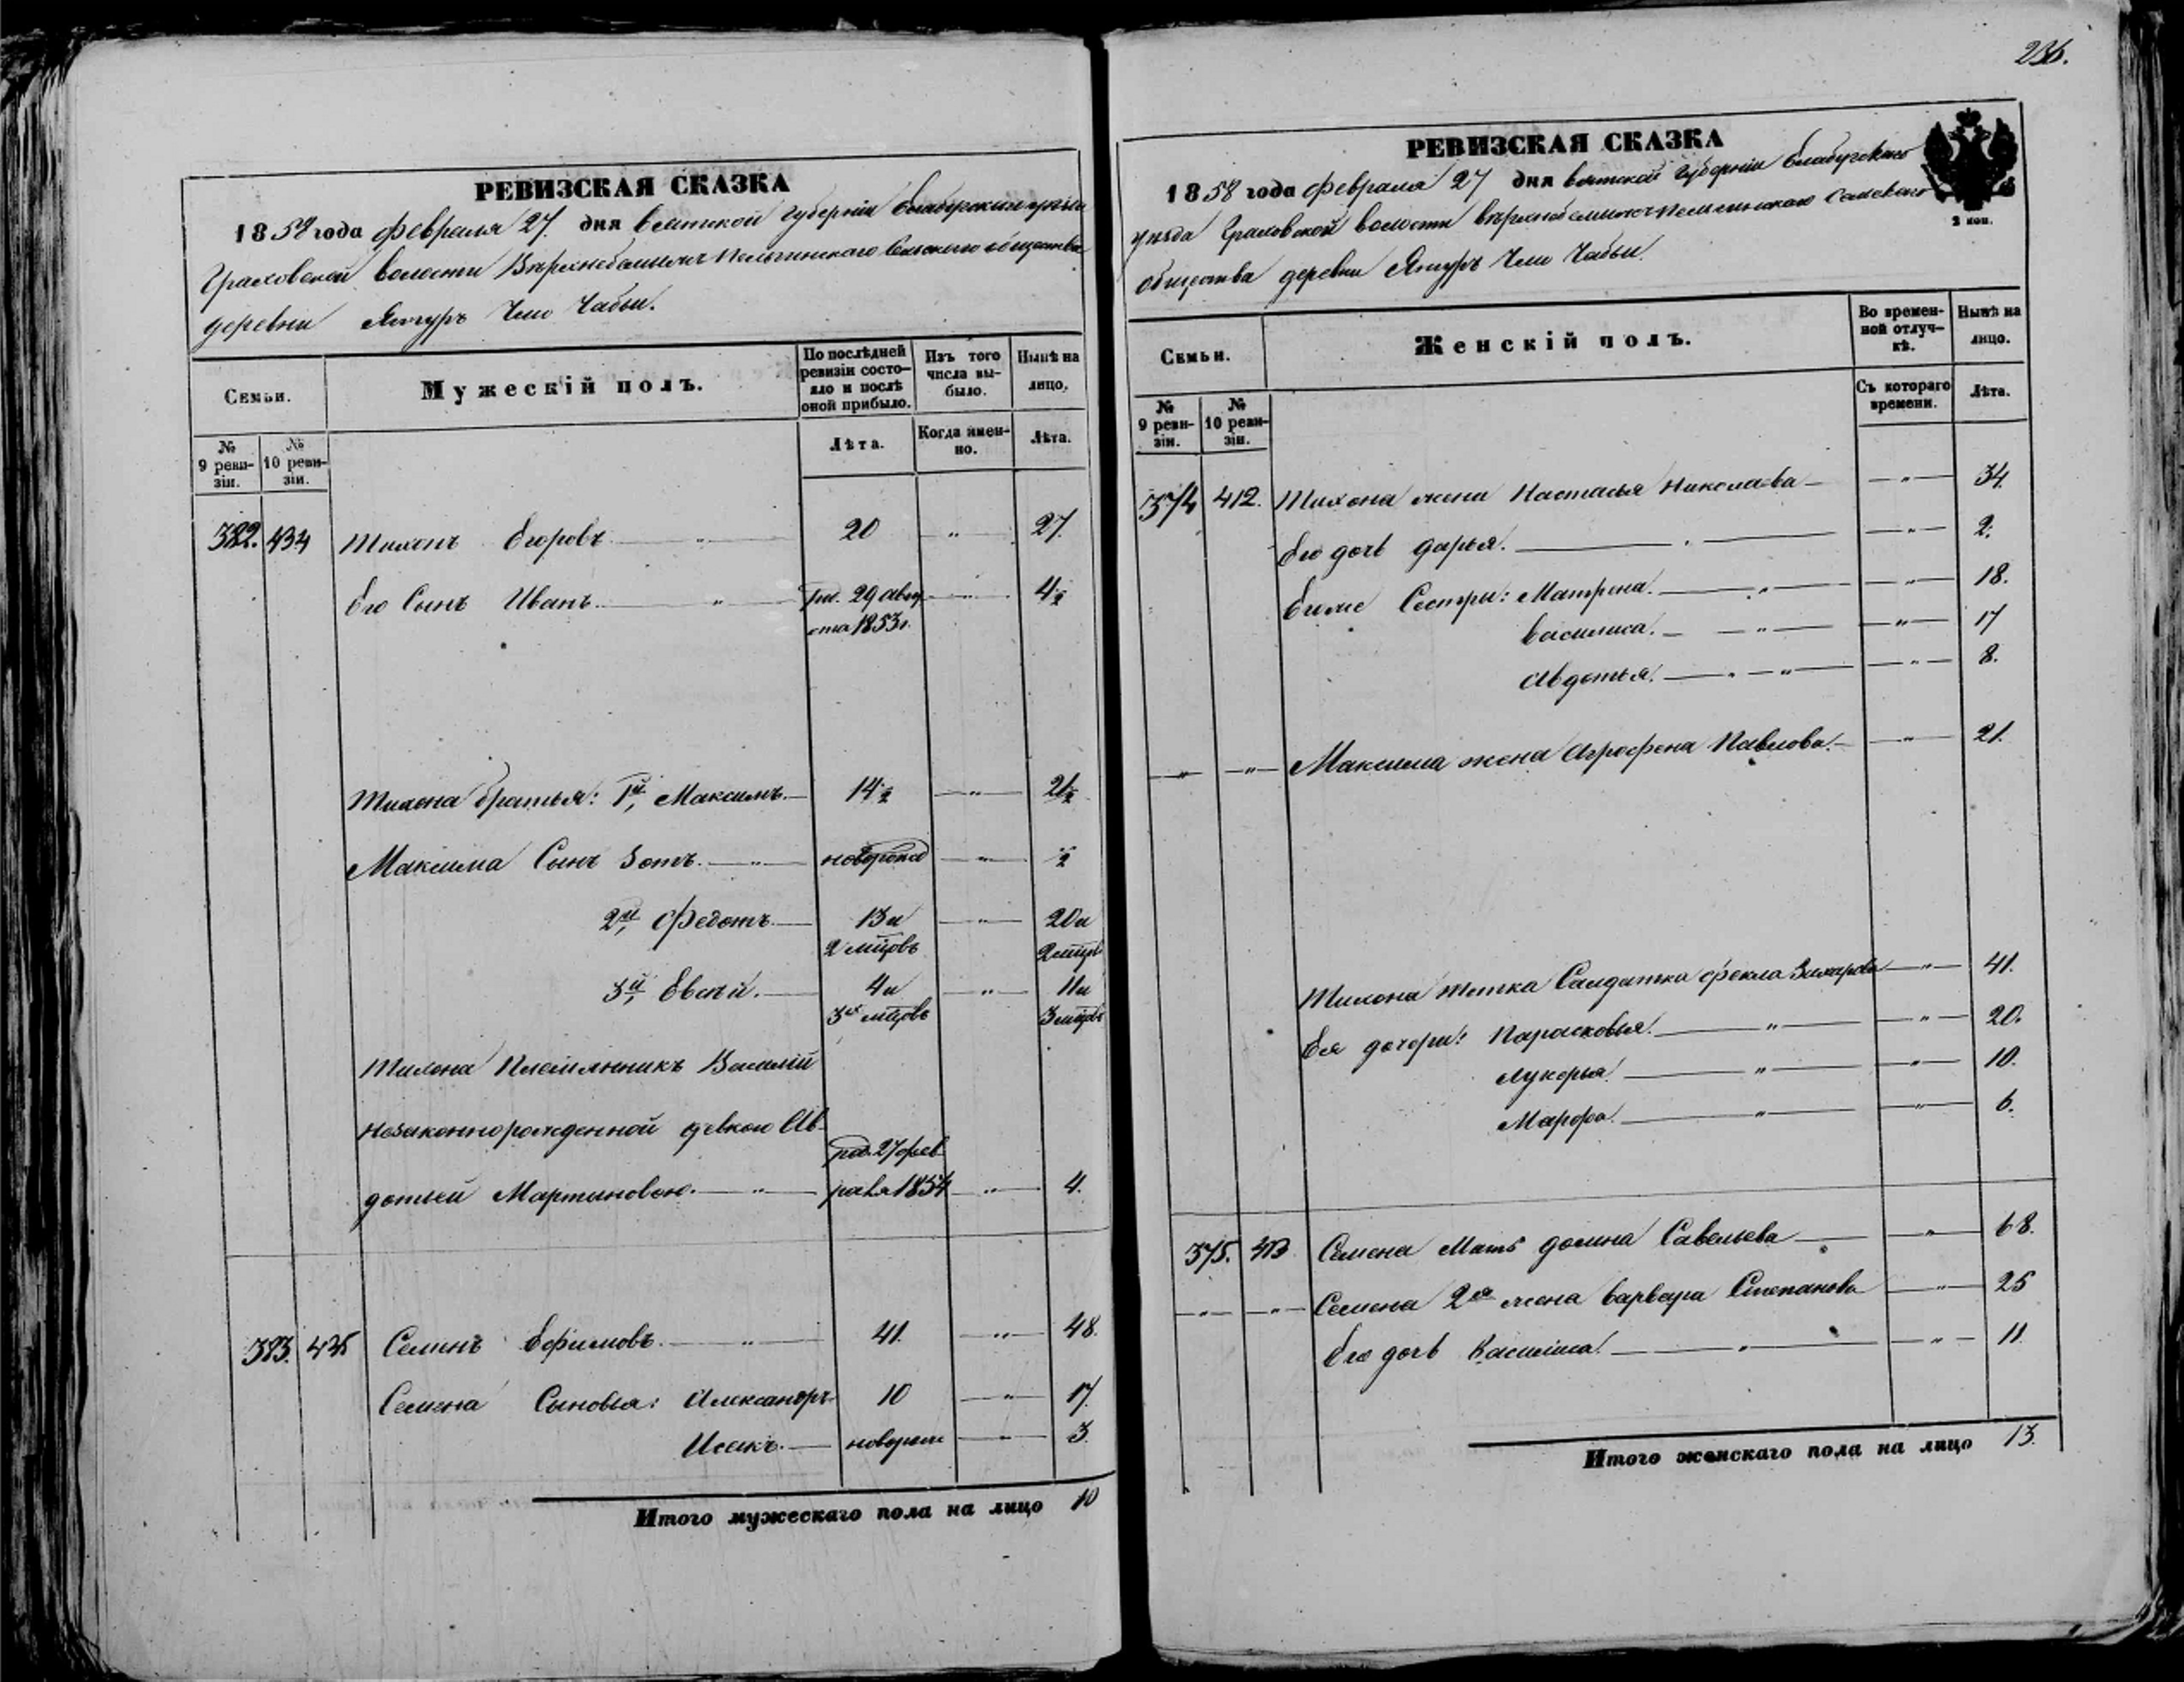 236.
РЕВИЗСКАЯ СКАЗКА
1858 года февраля 27. дня вятской губерніи Елабужскаго уѣзда
Граховской волости Сельского общества
деревни Ятуръ Чабьи.
Семьи.
Мужескій полъ.
По послѣдней ревизіи состояло и послѣ оной прибыло.
Изъ того числа выбыло.
Нынѣ на лицо.
№ 9 ревизіи.
№ 10 ревизіи.
Лѣта.
Когда именно.
Лѣта.
382. 434 Тихонъ Егоровъ — „ — 20 „ 27.
Его Сынъ Иванъ. — „ — род. 29 авгу- „ 4½
ста 1853 г.
Тихона братья: 1й, Максимъ. — 14½ — „ — 21½
Максима Сынъ Зотъ. — „ — новорожд — „ — ½
2й, Федотъ — 13 и — „ — 20 и
2 мцовъ 2 мцовъ
3й, Евсѣй. — 4 и — „ — 11 и
3х мцовъ 3 мцовъ
Тихона Племянникъ Василій
незаконнорожденной девкою Ав-
род. 27 фев
дотьей Мартиновою. — „ — раля 1854 — „ — 4.
383. 435 Семенъ Ефимовъ. — „ — 41. — „ — 48.
Семена Сыновья: Александръ 10 — „ — 17.
Исакъ. — новорож — „ — 3.
Итого мужескаго пола на лицо 10
РЕВИЗСКАЯ СКАЗКА
2 коп.
1858 года февраля 27 дня вятской губерніи Елабужскаго
уѣзда Граховской волости Сельскаго
общества деревни Ятуръ Чабьи.
Семьи.
Женскій полъ.
Во временной отлучкѣ.
Нынѣ на лицо.
№ 9 ревизіи.
№ 10 ревизіи.
Съ котораго времени.
Лѣта.
374 412. Тихона жена Настасья Николаева — — „ — 34.
Его дочь Дарья. — „ — — „ — 2.
Сестры: Матрена. — „ — — „ — 18.
Василиса. — „ — — „ — 17
Авдотья. — „ — „ — — „ — 8.
— „ — — „ — Максима жена Агрофена Павлова. — — „ — 21.
Тихона тетка Салдатка Фекла Захарова — „ — 41.
Ея дочери: Парасковья. — „ — — „ — 20.
Лукерья. — „ — — „ — 10.
Марфа. — „ — — „ — 6.
375. 413 Семена Мать Савельева — — „ — 68.
— „ — — „ — Семена 2я жена Варвара Степанова — „ — 25
Его дочь Васииса. — „ — — „ — 11.
Итого женскаго пола на лицо 13.